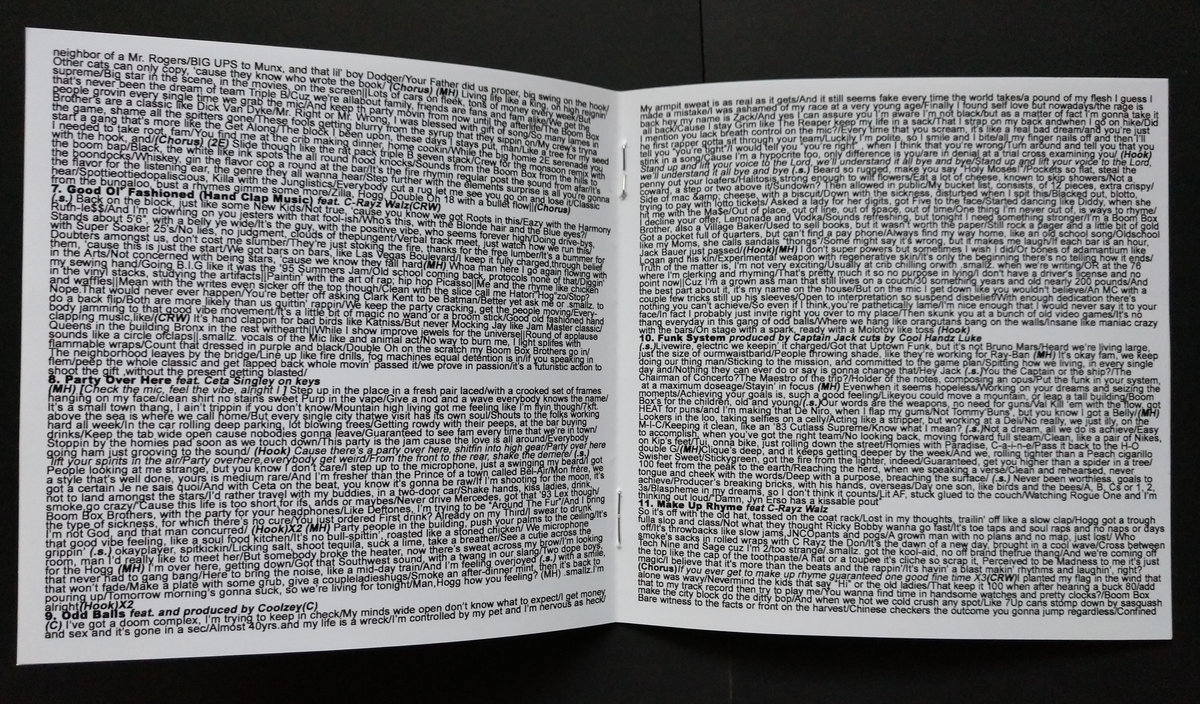 neighbor of a Mr. Rogers/BIG UPS to Munx, and that lil' boy Dodger/Your Father did us proper, big swing on the hook/
Other cats can only copy, 'cause they know who wrote the book/ (Chorus) (MH) Living life like a king, on high higher
supreme/Big star in the scene, in the movies, on the screen||Lots of cars on fleek, tons of money every week/But
that's never been the dream of team Triple B/Cuz we're allabout family, friends are fans and fam alike/We get the
people grovin every single time we grab the mic/And keep th party movin now until the afterlife/The Boom Box
brother's are a classic like Dick Van Dyke/Mr. Right or Mr. Wrong, I was blessed with gift of song/So many lames in
the game, shame all the spitters gone/These fools getting blurry from the syrup that they sippin on/My crew's tryna
start a gang that's more like the Get Along/The block I been upon, these days I stays put, man/Like a tree for my seed
I needed to take root, fam/You find me at the crib making dinner, home cookin/While the big homie 2E serenade you
with the hook, and/(Chorus) (2E) Slide though like the rat pack triple B seven stack/Crew for the Thompson remix we
the boom bap/Black, the white with the ink spots the all round hood knocks/Sounds from the Boom Box from the hills to
the boondocks/Whiskey, gin the flavor cop a round at the ban/It's the fire rhymin regular post the sound from afar/It's
the flavor for the listening ear, the genre they all wanna hear/Step further with the elements surprise is all you're gonna
hear/Spottieottiedopaliscious, Killa with the Visuals/Engineering/Everybody cut a rug let me see you go on and lose it/Classic
from the bungalow, bust a rhymes gimme some more/Zilla, Hogg, Double Oh 18 with a bullet now||(Chorus)
7. Good Ol' Fashioned (Hand Clap Music) feat. C-Rayz Walz(CRW)
(.s.) Back on the block, just like some New Kids/Not true, 'cause you know we got Roots in this/Eazy with the Harmony
Ruth-le$$/And I'm clowning on you jesters with that fool-ish/Who's this, with the Blonde hair and the Blue eyes?/
Stands about 5'6", with a belly ye wide/It's the guy, with the positive vibe, who seems forever high/Doing drive-bys,
with Super Soaker 25's/No lies, no judgment, clouds of the pungent/Verbal track team results, just watch how we run this/
Doubters amongst us, don't cost me slumber/They're just stoking the fire, thanks for the free lumber/It's a bummer for
them, 'cause this is just the start/We got bars on bars, like Las Vegas Boulevard/I keep it fully charged through belief
in the Arts/Not concerned with being stars, 'cause we know they fall hard(MH) Whoa man here I go again flowing with
my sewing hand/Going B.I.G like it was the '95 Summers Jam/Old school coming back, protocols none of that/Diggin'
in the vinyl stacks, studying the artifacts||Paintin' with the art of rap, hip hop Picasso||Me and the rhyme like chicken
and waffles||Mean with the writes even sicker off the top though/Clean with the slice call me Hatori"Hog"zo/Stop?
Nope.That would never ever happen/You're better off asking Clark Kent to be Batman/Better yet ask me or .smallz. to
do a back flip/Both are more likely than us quittin' rappin'/We keep the party cracking, get the people moving/Every-
body jamming to that good vibe movement/It's a little bit of magic no wand or a broom stick/Good old fashioned hand
clapping music like/(CRW) t's hand clappin for bad birds like Katniss/But never Mocking Jay like Jam Master classic/
Queens in the building Bronx in the rest withearth||While I show improve jewels for the Universe||Round of applause
sounds like a circle ofclaps||.smallz. vocals of the Mic like and animal act/No way to burn me, I light spliffs with
flammable wraps/Count that dressed in purple and black/Double Oh on the scratch my Boom Box Brothers go in/
The neighborhood leaves by the bridge/Line up like fire drills, fog machines equal detention is in/If you speaking in
flem/peep the whole classic and get lapped back whole movin' passed it/we prove in passion/it's a futuristic action to
shoot the gift ,without the present getting blasted/
8. Party Over Here feat. Ceta Singley on keys
(MH) [Check the mic, feel the vibe, a/right ! ] Step up in the place in a fresh pair laced/with a crooked set of frames
hanging on my face/clean shirt no stains sweet Purp in the vape/Give a nod and a wave everybody knows the name/
It's a small town thang, I ain't trippin if you don't know/Mountain high living got me feeling like I'm flyin though/7kft.
above the sea is where we call home/But every single city thatwe visit has its own soul/Shouts to the folks working
hard all week/In the car rolling deep parking, lot blowing trees/Getting rowdy with their peeps, at the bar buying
drinks/Keep the tab wide open cause nobodies gonna leave/Guaranteed to see fam every time that we're in town/
Stoppin by the homies pad soon as we touch down/This party is the jam cause the love is all around/Everybody
going ham just grooving to the sound/ (Hook) Cause there's a party over here, shiftin into high gear/Party over here
"lift your spirits in the air/Party overhere,everybody get weird/From the front to the rear, shake the derriere/ (.s.)
People looking at me strange, but you know I don't care/I step up to the microphone, just a swinging my beard/I got
a style that's well done, yours is medium rare/And I'm fresher than the Prince of a town called Bel-Air/Mon frère, we
got a certain Je ne sais quoi/And with Ceta on the beat, you know it's gonna be raw/If I'm shooting for the moon, it's
not to land amongst the stars/I'd rather travel with my buddies, in a two-door car/Shake hands, kiss ladies, drink,
smoke,go crazy/'Cause this life is too short,for ifs, ands or maybes/Never drive Mercedes, got that '93 Lex though/
Boom Box Brothers, with the party for your headphones/Like Deftones, I'm trying to be "Around The Fur"/And I bring
the type of sickness, for which there's no cure/You just ordered First drink? Already on my Third/I swear to drunk
I'm not God, and that man concurred/ (Hook)X2 (MH) Party people in the building, push your palms to the ceiling/It's
that good vibe feeling, like a soul food kitchen/It's no bull-spitin', roastin' like a stoned chicken/We microphone
grippin' (.s.) okayplayer, spitkickin/Licking salt, shoot tequila, suck a lime, take a breather/See a cutie across the
room, man I'd really like to meet her/But somebody broke the heater, now there's sweat across my brow/I'm looking
for the Hogg (MH) I'm over here, getting down/Got that Southwest sound, with a twang in our slang/Two dope boys,
that never had to gang bang/Here to bring the noise, like a mid-day train/And I'm feeling overjoyed (.s.) with a smile,
that won't fade/Make a plate with some grub, give a coupleladieshugs/Smoke an after-dinner mint, then it's back to
pouring up/Tomorrow morning's gonna suck, so we're living for tonight/Man,Hogg how you feeling? (MH) .smallz.I'm
alright(Hook)X2
9. Odd Balls feat. and produced by Coolzey(C)
(C) I've got a doom complex, I'm trying to keep in check/My minds wide open don't know what to expect/I get money,
and sex and it's gone in a sec/Almost 40yrs.and my life is a wreck/I'm controlled by my pet and I'm nervous as heck/
My armpit sweat is as real as it gets/And it still seems fake every time the world takes/a pound of my flesh I guess I
made a mistake/I was ashamed of my race at a very young age/Finally I found self love but nowadays/the rage is
back hey my name is Zack/And yes I can assure you I'm aware I'm not black/but as a matter of fact I'm gonna take it
all back/Cause I stay Grim like The Reaper keep my life in a sack/That I strap on my back andwhen I go on hike/Did
I mention you lack breath control on the mic?/Every time that you scream, it's like a real bad dream/and you're just
the first rapper gotta sit through your team/Luckily I'm polite, so I smile and I bite/all my finger nails off and then I'll
tell you "you're right"/I would tell you "you're right", when I think that you're wrong/Turn around and tell you that you
stink in a song/Cause I'm a hypocrite too, only difference is you/are in denial at a trial cross examining you/ (Hook)
Stand up and lift your voice to the Lord, we'll understand it all bye and bye/Stand up and lift your voice to the Lord,
we'll understand it all bye and bye (.s.) Beard so rugged, make you say "Holy Moses"/Pockets so flat, steal the
penny out your loafers/Halitosis,strong enough to will flowers/Eat a lot of cheese, known to skip showers/Not a
coward, a step or two above it/Sundown? Then allowed in public/My bucket list, consists, of 12 pieces, extra crispy/
Side of mac &amp;amp; cheese, with a biscuit/Down with the sickness, disturbed when I spit this/Blacked out, blotto
trying to pay with lotto tickets/ Asked a lady for her digits, got Five to the face/Started dancing like Diddy, when she
hit me with the Ma$e/Out of place, out of line, out of space, out of time/One thing I'm never out of, is ways to rhyme/
I decline your offer, Lemonade and Vodka/Sounds refreshing, but tonight I need something stronger/I'm a Boom Box
Brother, also a Village Baker/Used to sell books, but it wasn't worth the paper/Still rock a pager and a little bit of gold
Got a pocket full of quarters, but can't find a pay phone/Always find my way home, like an old school song/Oldschool
like my Moms, she calls sandals "thongs"/Some might say it's wrong, but it makes me laugh/If each bar is an hour,
Jack Bauer just passed/(Hook)(MH) I don't super powers but sometimes I wish I did/Or bones of adamantium like
Logan and his kin/Experimental weapon with regenerative skin/It's only the beginning there's no telling how it ends/
Truth of the matter is, I'm not very exciting/Usually at crib chilling orwith .smallz. when we're writing/OR at the 76
where I'm clerking and rhyming/That's pretty much it so no purpose in lying/I don't have a driver's license and no
point now||Cuz I'm a grown ass man that still lives on a couch/30 something years and old nearly 200 pounds/And
the best part about it, it's my name on the house/But on the mic I get down like you wouldn't believe/An MC with a
couple few tricks still up his sleeves/Open to interpretation so suspend disbelief/With enough dedication there's
nothing you can't achieve/So even if I think you're pathetically lame/I'm nice enough that I would never say it to your
face/In fact I probably just invite right you over to my place/Then skunk you at a bunch of old video games/It's no
thang everyday in this gang of odd balls/Where we hang like orangutans bang on the walls/Insane like maniac crazy
with the bars/On stage with a spark, ready with a Molotov like toss (Hook)
10. Funk System produced by Captain Jack cuts by Cool Handz Luke
(.s.)Livewire, electric we keepin' it charged/Got that Uptown Funk, but it's not Bruno Mars/Heard we're living large,
just the size of ourmwaistband/People throwing shade, like they're working for Ray-Ban (MH) It's okay fam, we keep
doing our thing man/Sticking to the mission, and committed to the game plan/Spitting how we living, in every single
day and/Nothing they can ever do or say is gonna change that/Hey Jack (.s.)You the Captain or the ship?/The
Chairman of Concerto?/The Maestro of the trip?/Holder of the notes, composing an opus/Put the funk in your system,
at a maximum doseage/Stayin' in focus (MH) Evenwhen it seems hopeless/Working on your dreams and seizing the
moments/Achieving your goals is, such a good feeling/Likeyou could move a mountain, or leap a tall building/Boom
Box's for the children, old and young/(.s.)Our words are the weapons, no need for guns/Val Kill 'em with the flow, got
HEAT for puns/And I'm making that De Niro, when I flap my gums/Not Tommy Buns , but you know I got a Belly/(MH)
Lookers in the loo, taking selfies on a celly/Acting like a stripper, but working at a Deli/No really, we just illy, on the
M-I-C/Keeping it clean, like an '83 Cutlass Supreme/Know what I mean? (.s.)Not a dream, all we do is achieve/Easy
to accomplish, when you've got the right team/No looking back, moving forward full steam/Clean, like a pair of Nikes,
on Kip's feet/Tui, onna bike, just rolling down the street/Homies with Paradise, C-a-i-n-e/Pass it back to the H-O
double G/(MH)Clique's deep, and it keeps getting deeper by the week/And we, rolling tighter than a Peach cigarillo
Swisher Sweet/Stickygreen, got the fire from the lighter, indeed/Guaranteed, get you higher than a spider in a tree/
100 feet from the peak to the earth/Reaching the herd, when we speaking a verse/Clean and rehearsed, never
tongue and cheek with the words/Deep with a purpose, breaching the surface/ (.s.) Never been worthless, goals to
achieve/Producer's breaking bricks, with his hands, overseas/Day one son, like birds and the bees/A, B, C$ or 1, 2,
3s/Blaspheme in my dreams, so I don't think it counts/Lit AF, stuck glued to the couch/Watching Rogue One and I'm
thinking out loud/"Damn, Jyn Erso has a kissable pout"
11. Make Up Rhyme feat C-Rayz Walz
So it's off with the old hat, tossed on the coat rack/Lost in my thoughts, trailin' off like a slow clap/Hogg got a trough
fulla slop and class/Not what they thought Ricky Bobby wanna go fast/It's toe taps and soul raps and no naps or days
off/It's throwbacks like slow jams,NCOpants and pogs/A grown man with no plans and no map, just lost/ Who
smoke's sacks in rolled wraps with C Rayz the Don/It's the dawn of a new day, brought in a cool wave/Cross between
Tech Nine and Sage cuz I'm 2/too strange/.smallz. got the kool-aid, no off brand thethe thang/And we're coming off
the top like the cap of the toothpaste/A hat or a toupee it's cliche so scrap it, Perceived to be Madness to me it's just
magic/I believe that it's more than the beats and the rappin'/It's havin' a blast makin' rhythms and laughin', right?
(Chorus)If you ever get to make up rhyme guaranteed one good fine time X3(CRW)I planted my flag in the wind that
alone was wavy/Nevermind the kids that say "Hi" or the old ladies/That keep it 100 when after hearing a buck 80/add
that to my track record then try to play me/You wanna find time in handsome watches and pretty clocks?/Boom Box
make the city block do the ditty bop/And when we hot we cold crush any spot/Like 7up cans stomp down by sasquash
Bare witness to the facts or front on the harvest/Chinese checkers the outcome you gonna jump regardless/Confined